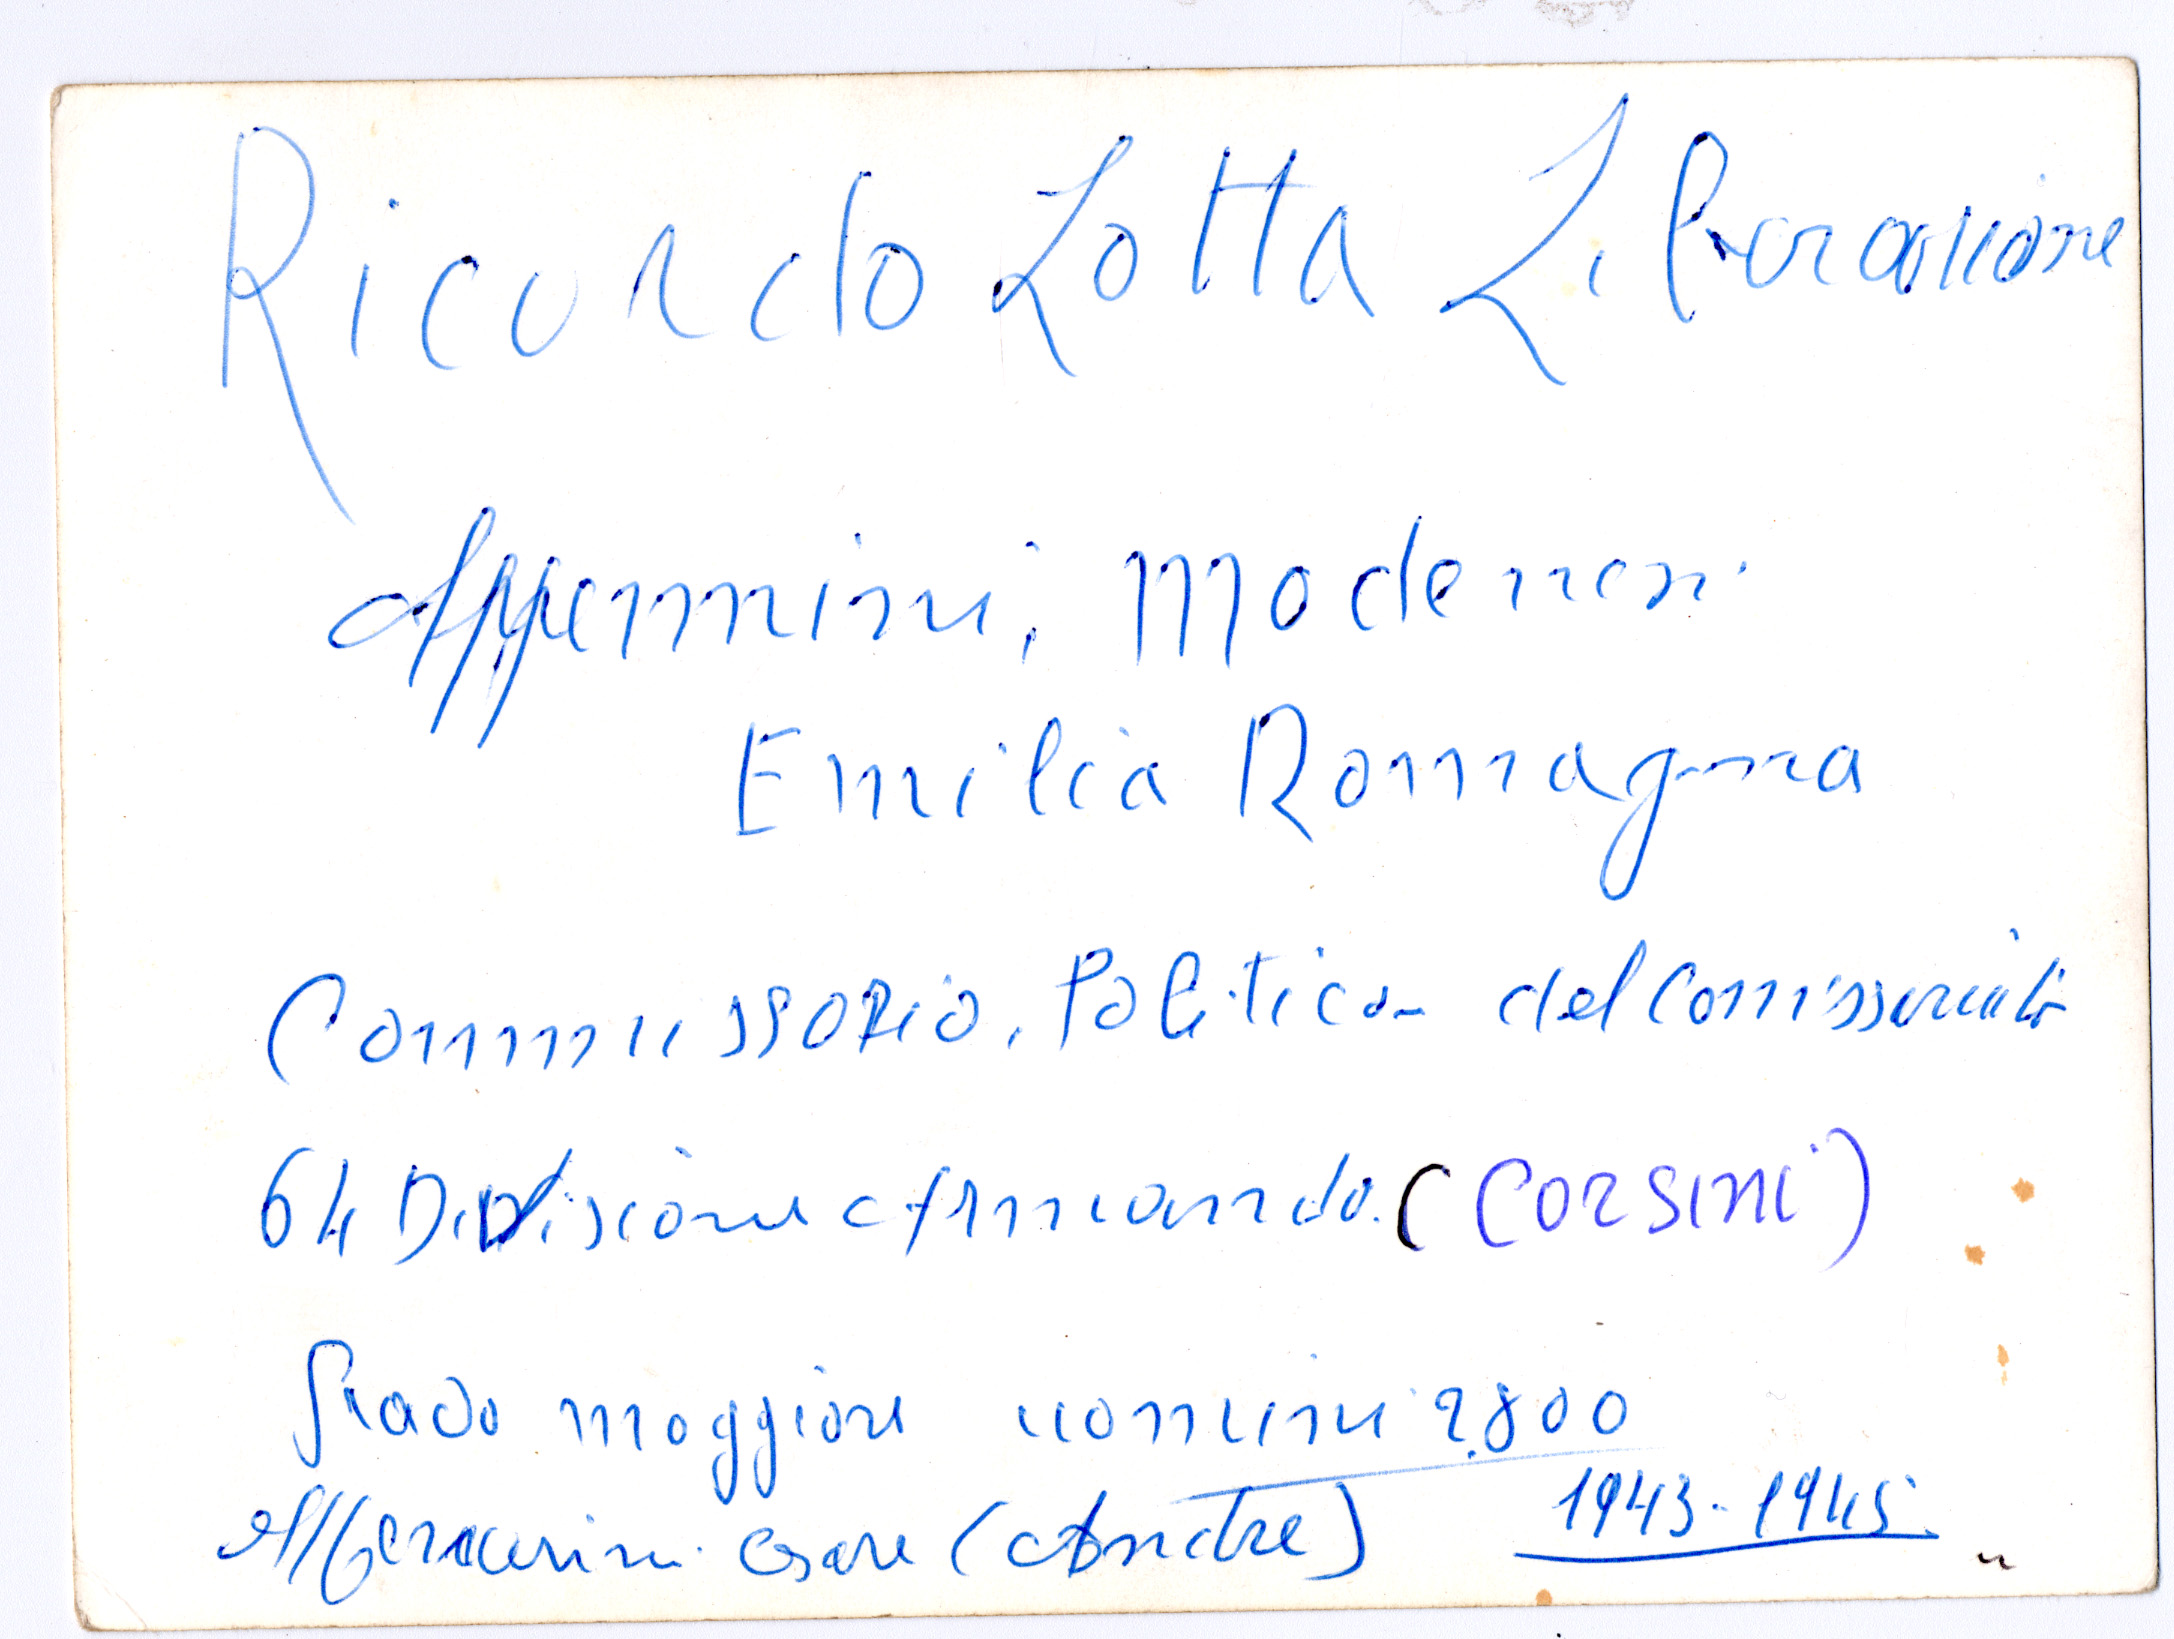 Ricordo Lotta Liberazione
Appennini, Modenesi
Emilia Romagna
Commissario, Politico del Comissariato
64 Divisione Armando. (CORSINI)
Grado maggiore uomini 2800
Mercurini Cesare (Andre) 1943-1945